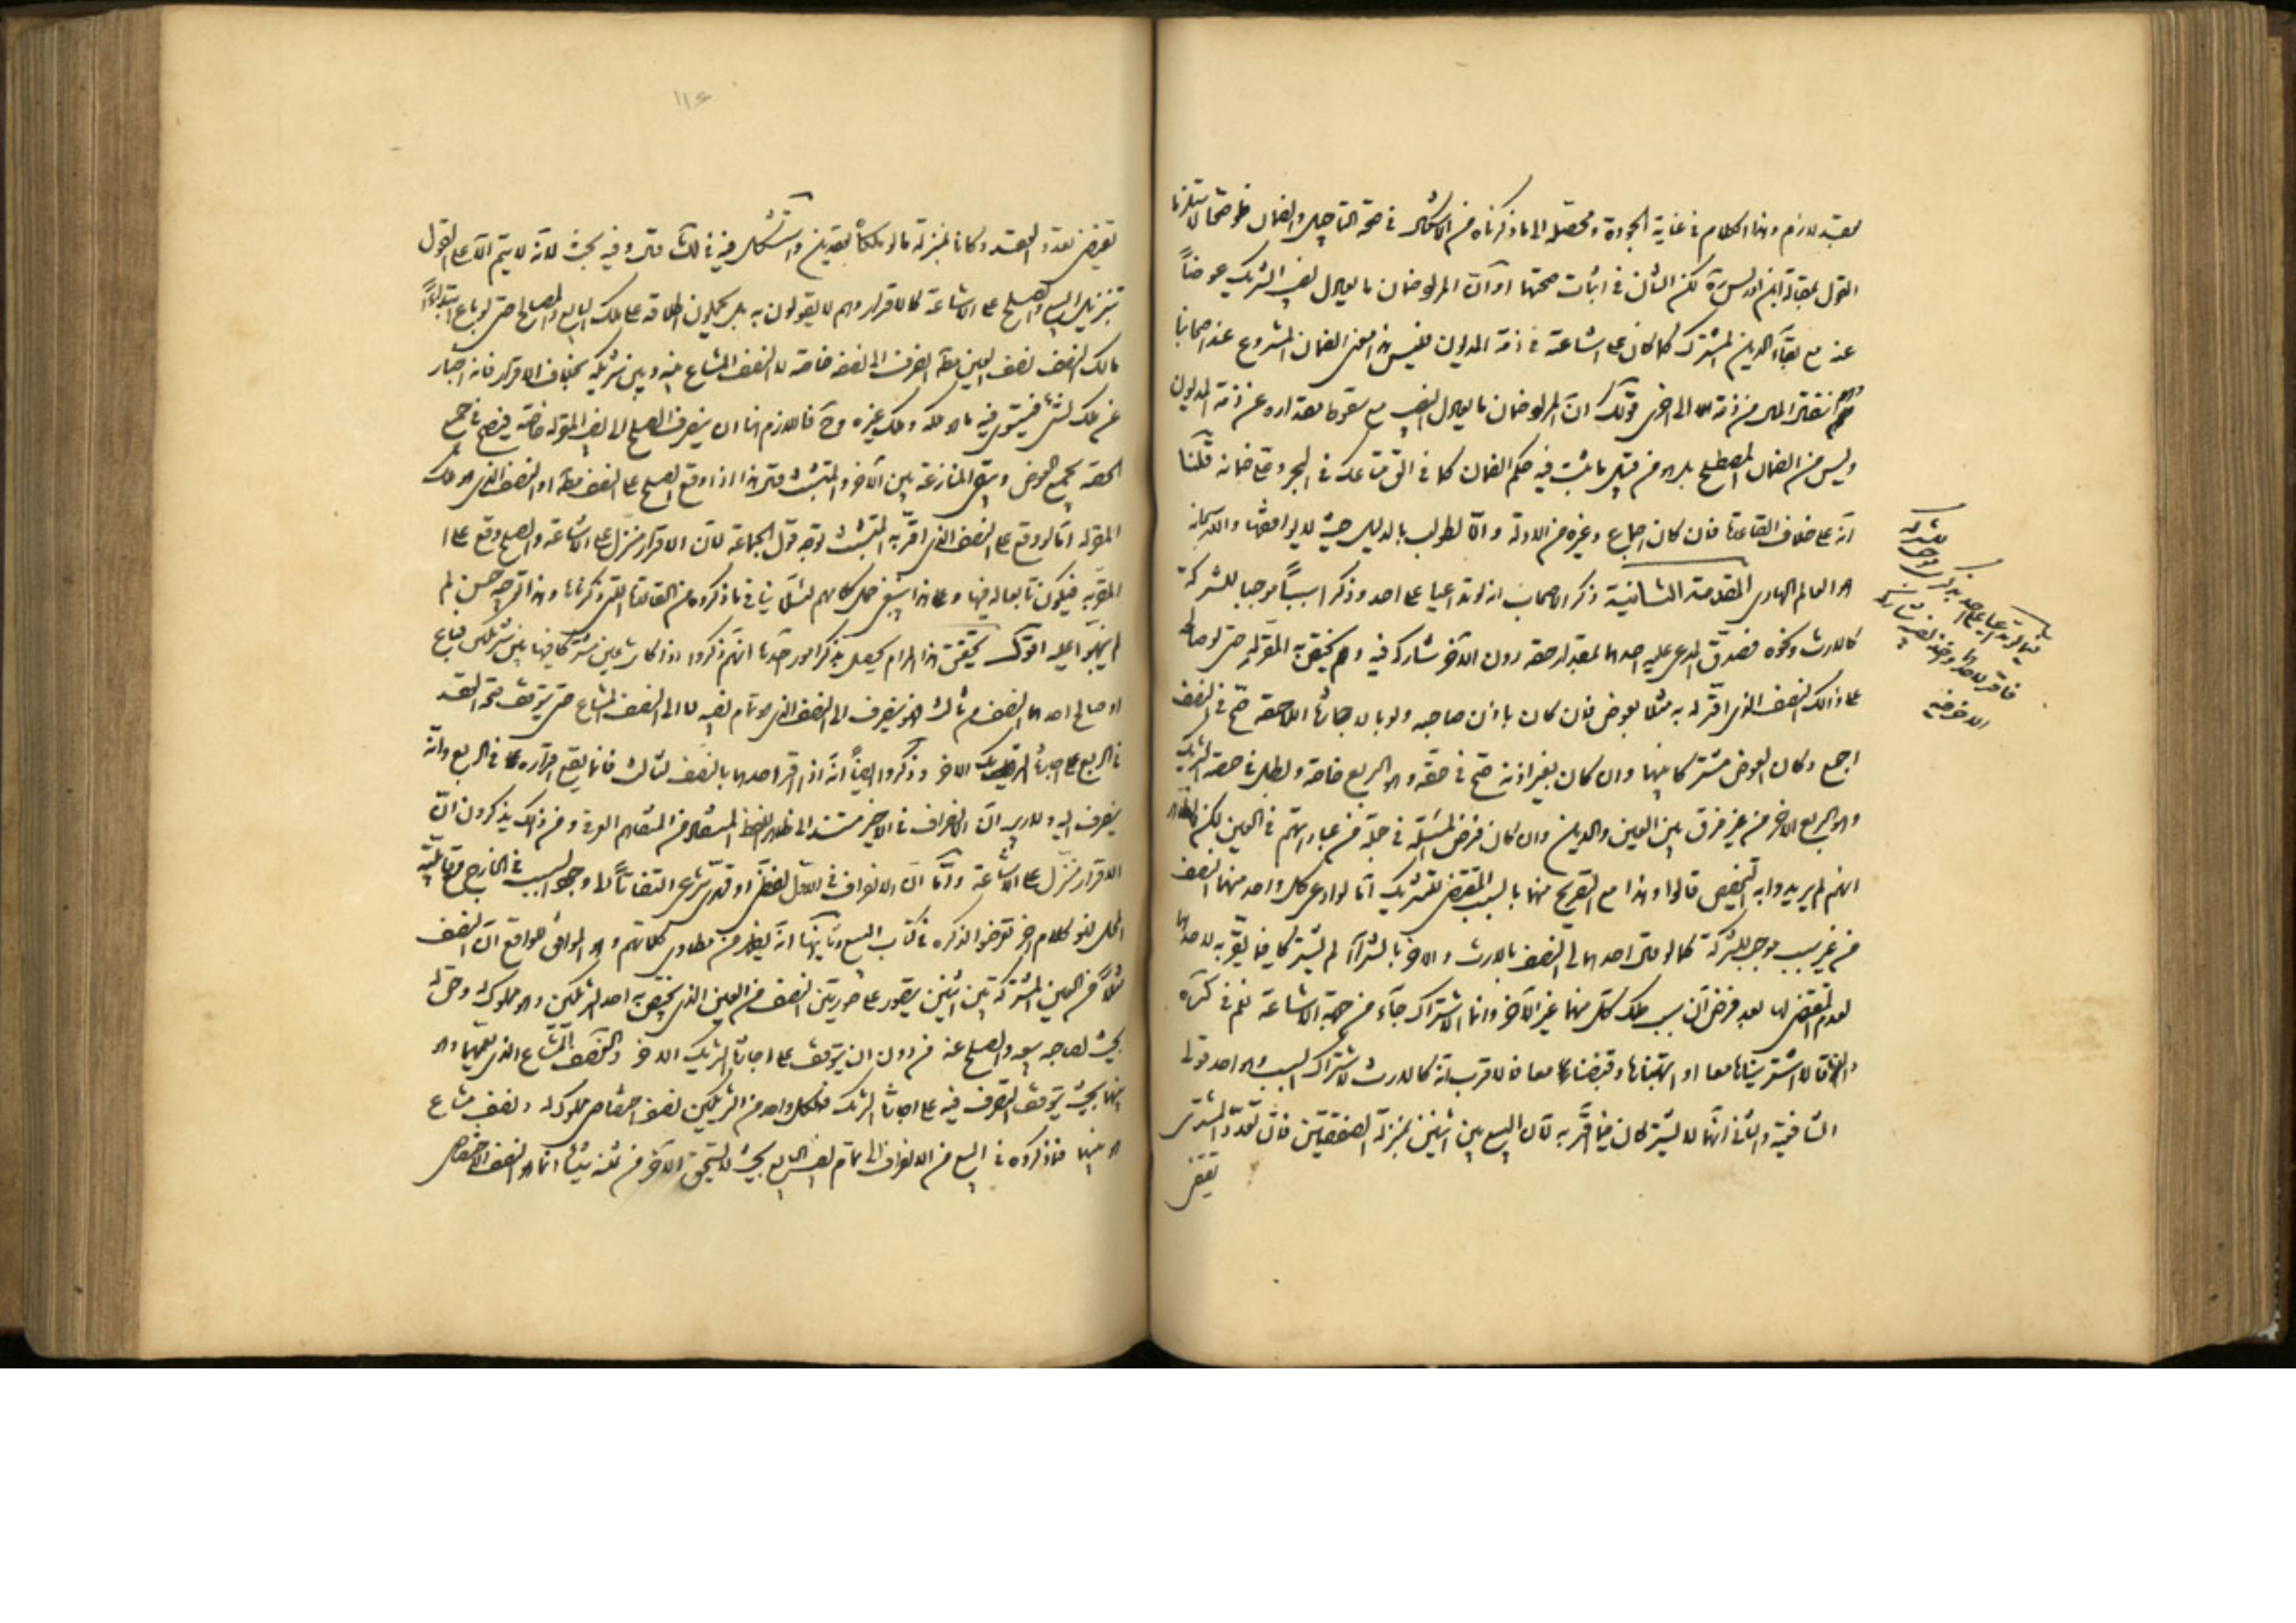 معتبد لازم وهذا الكلام في غاية الجودة ومحصله الى ما ذكرناه من الاشكال في صحة التأجيل والضمان
القول بمقالة ابن ادريس ره لكن الشأن في اثبات صحتها او ان المراد ضمان ما يعادل نصيب الشريك عوضاً
عنه مع بقاء الدين المشترك كما كان على اشاعته في ذمة المديون فليس هذا معنى الضمان المشروع عند اصحابنا
انتقال المال من ذمة الى اخرى قولك ان المراد ضمان ما يعادل النصيب مع سقوط مقداره عن ذمة المديون
وليس من الضمان المصطلح بل هو من قبيل ما يثبت فيه حكم الضمان كما في الق متاعك في البحر وعلي ضمانه قلنا
انه على خلاف القاعدة فان كان اجماع وغيره من الادلة والا نطولب بالدليل حيث لا يوافقها والله سبحانه
هو العالم الهادي المقدمة الثانية ذكر الاصحاب انه لو ادعيا على احد وذكرا سبباً موجبا للشركة
كالارث ونحوه فصدق المدعى عليه احدهما بمقدار حقه دون الآخر شاركه فيه ولا يختص به المقر له حتى لو صالح
على ذلك النصف الذي اقر له به مثلا بعوض فان كان باذن صاحبه ولو بالاجازة اللاحقة صح في النصف
اجمع وكان العوض مشتركا بينهما وان كان بغير اذنه صح في حقه وهو الربع خاصة وبطل في حصة الشريك
وهو الربع الآخر من غير فرق بين العين والدين وان كان فرض المسئلة في جملة من عباراتهم في العين لكن الظاهر
انهم لم يريدوا به التخصيص قالوا وهذا مع التصريح منهما بالسبب المقتضي للتشريك اما لو ادعى كل واحد منهما النصف
من غير سبب موجب للشركة كما لو قال احدهما لي النصف بالارث والآخر بالشراء لم يشتركا فيما يقر به لاحدهما
لعدم المقتضي لها بعد فرض ان سبب ملك كل منهما غير الآخر وانما الاشتراك جاء من جهة الاشاعة نعم في كره
والقفا لو قالا اشتريناها معا او اتهبناها وقبضناها معا فالاقرب انه كالارث لاشتراك السبب وهو احد قولي
الشافعية والثاني انهما لا يشتركان فيما اقر به لان البيع بين اثنين بمنزلة الصفقتين فان تعدد المشتري
يقتضي
للشركة
فيما لو ادعيا على احد
فاقر لاحدهما
الآخر فيه
١١٤
يقتضي تعدد العقد وكانا بمنزلة ما لو ملكا بعقدين واستشكل فيه في لك قال وفيه بحث لانه لا يتم الا على القول
بتنزيل البيع والصلح على الاشاعة كالاقرار وهم لا يقولون به بل يحملون اطلاقه على ملك البايع والمصالح حتى لو باع ابتداءً
مالك النصف نصف العين مطلقا انصرف الى نصفه خاصة لا النصف المشاع بينه وبين شريكه بخلاف الاقرار فانه اخبار
عن ملك لشيء فيستوي فيه ما هو ملكه وملك غيره وح فاللازم هنا ان ينصرف الصلح الى نصيب المقر له خاصة فيصح في جميع
الحصة بجميع العوض وتبقى المنازعة بين الآخر والمتشبث قال هذا اذا وقع الصلح على النصف مطلقا او النصف الذي هو ملك
المقر له اما لو وقع على النصف الذي اقر به المتشبث توجه قول الجماعة لان الاقرار منزل على الاشاعة والصلح وقع على
المقر به فيكون تابعا له فيها وعلى هذا ينبغي حمل كلامهم لئلا ينافي ما ذكروه من القاعدة التي ذكرناها وهذا توجيه حسن لم
ينبهوا عليه اقول تحقيق هذا المرام يحصل بذكر امور احدها انهم ذكروا اذا كان شيء بين شريكين فباع
او صالح احدهما النصف من ثالث فهو ينصرف الى النصف الذي هو تمام نصيبه لا الى النصف المشاع حتى يتوقف صحة العقد
في الربع على اجازة الشريك الآخر وذكروا ايضاً انه اذا اقر احدهما بالنصف لثالث فانما يقع اقراره في الربع وانه
ينصرف اليه ولا ريب ان الانصراف في الاخير مستند الى ظهور اللفظ المستفاد من المتفاهم العرفي ومن ذلك يذكرون ان
الاقرار منزل على الاشاعة واما ان الانصراف في الاول لفظي او تعبدي شرعي
المحل فهو كلام آخر تعرضوا لذكره في كتاب البيع وثانيها انه يظهر من مطاوي كلماتهم وهو الموافق للواقع ان النصف
مثلاً من العين المشتركة بين اثنين يتصور على صورتين النصف من العين الذي يختص به احد الشريكين وهو مملوك له وحق له
بحيث لصاحبه بيعه والصلح عنه من دون ان يتوقف على اجازة الشريك الآخر والنصف المشاع الذي
بينهما بحيث يتوقف التصرف فيه على اجازة الشريك فلكل واحد من الشريكين نصف اختصاصي مملوك له ونصف مشاع
هو بينهما فما ذكروه في البيع من الانصراف الى تمام نصيب البايع بحيث لا يستحق الآخر من ثمنه شيئا انما هو النصف الاختصاصي